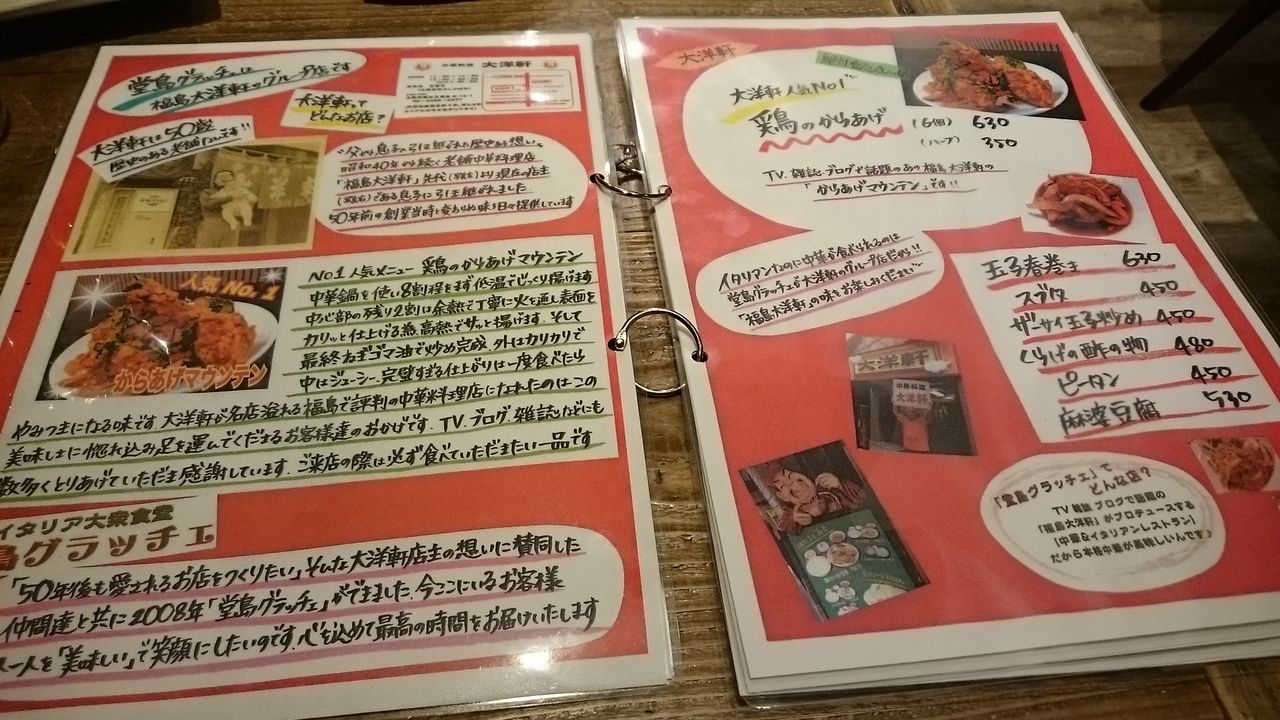 堂島グラッチェは
福島大洋軒のグループ店です
大洋軒って
どんなお店?
中華料理 大洋軒
大洋軒は50歳
歴史のある老舗なんです!!
"父から息子に引き継がれた歴史ある想い"
昭和40年から続く老舗中華料理店
「福島大洋軒」先代(写真左)より現在の店主
(写真右)である息子に引き継がれました
50年前の創業当時と変わらぬ味を日々提供しています
人気No.1
からあげマウンテン
No1人気メニュー 鶏のからあげマウンテン
中華鍋を使い8割程をまず低温でじっくり揚げます
中心部の残り2割は余熱で丁寧に火を通し表面を
カリッと仕上げる為高熱でサッと揚げます。そして
最終ねぎゴマ油で炒め完成 外はカリカリで
中はジューシー、完璧すぎる仕上がりは一度食べたら
やみつきになる味です 大洋軒が名店溢れる福島で評判の中華料理店になれたのはこの
美味しさに惚れ込み足を運んでくださるお客様達のおかげです。TV、ブログ、雑誌などにも
数多くとりあげていただき感謝しています。ご来店の際は必ず食べていただきたい一品です
イタリア大衆食堂
島グラッチェ
「50年後も愛されるお店をつくりたい」そんな大洋軒店主の想いに賛同した
仲間達と共に2008年「堂島グラッチェ」ができました。今ここにいるお客様
一人を「美味しい」で笑顔にしたいのです。心を込めて最高の時間をお届けいたします
大洋軒
大洋軒 人気No1
鶏のからあげ (5個) 630
(ハーフ) 350
TV、雑誌・ブログで話題のあの福島大洋軒の
「からあげマウンテン」です!!
イタリアンなのに中華が食べられるのは
堂島グラッチェが大洋軒のグループ店だから!!
「福島大洋軒」の味をお楽しみください
玉子春巻き 630
スブタ 450
ザーサイ玉子炒め 450
くらげの酢の物 480
ピータン 450
麻婆豆腐 530
大洋軒
中華料理
大洋軒
「堂島グラッチェ」って
どんな店?
TV 雑誌 ブログで話題の
「福島大洋軒」がプロデュースする
「中華&イタリアンレストラン!
だから本格中華が美味しいんです♪